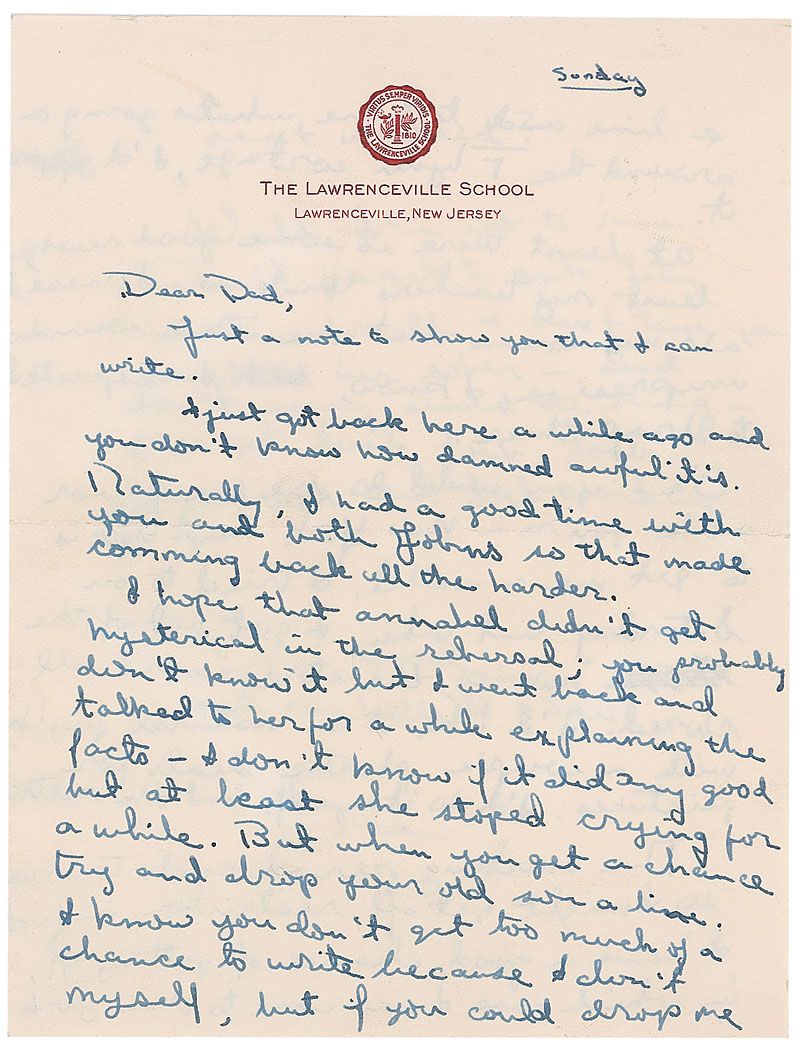 Sunday
VIRTUS SEMPER VIRIDIS
THE LAWRENCEVILLE SCHOOL
1810
THE LAWRENCEVILLE SCHOOL
LAWRENCEVILLE, NEW JERSEY
Dear Dad,
Just a note to show you that I can
write.
I just got back here a while ago and
you don't know how damned awful it is.
Naturally, I had a good time with
you and both so that made
comming back all the harder.
I hope that annabel didn't get
hysterical in the rehersal; you probably
didn't know it but I went back and
talked to her for a while explaining the
facts — I don't know if it did any good
but at least she stoped crying for
a while. But when you get a chance
try and drop your old son a line.
I know you don't get too much of a
chance to write because I don't
myself, but if you could drop me